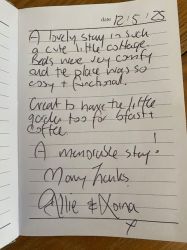 date 12/5/25
A lovely stay in such
a cute little cottage.
Beds were very comfy
and the place was so
cosy & functional.
Great to have the little
garden too for b'fast &
coffee.
A memorable stay!
Many Thanks
Ollie &
x